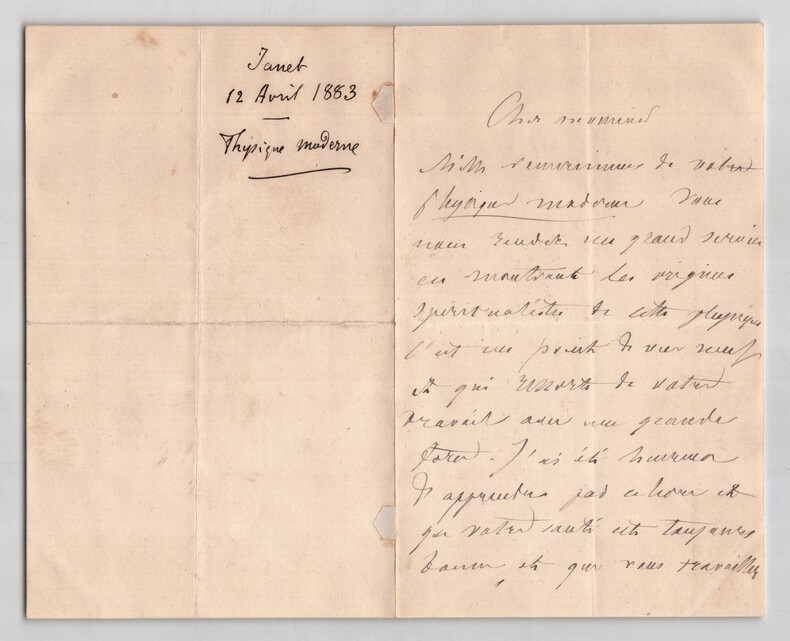 Janet
12 Avril 1883
Physique moderne
Cher
Mille de votre
physique moderne Vous
nous rendez un grand service
en montrant les origines
spiritualistes de cette physique
C'est un point de vue neuf
et qui ressort de votre
travail avec une grande
force. J'ai été heureux
d'apprendre par
que votre santé est toujours
bonne et que vous travaillez